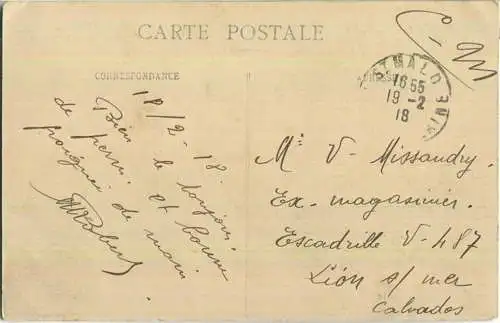 CARTE POSTALE
CORRESPONDANCE
18/2-18.
Bien le toujours
de permi et bonne
poignée de main
ST MALO
16 55
19 -2
18
Mr V. Missandry.
Ex-magasinier.
Escadrille V-487
Lion s/ mer
Calvados